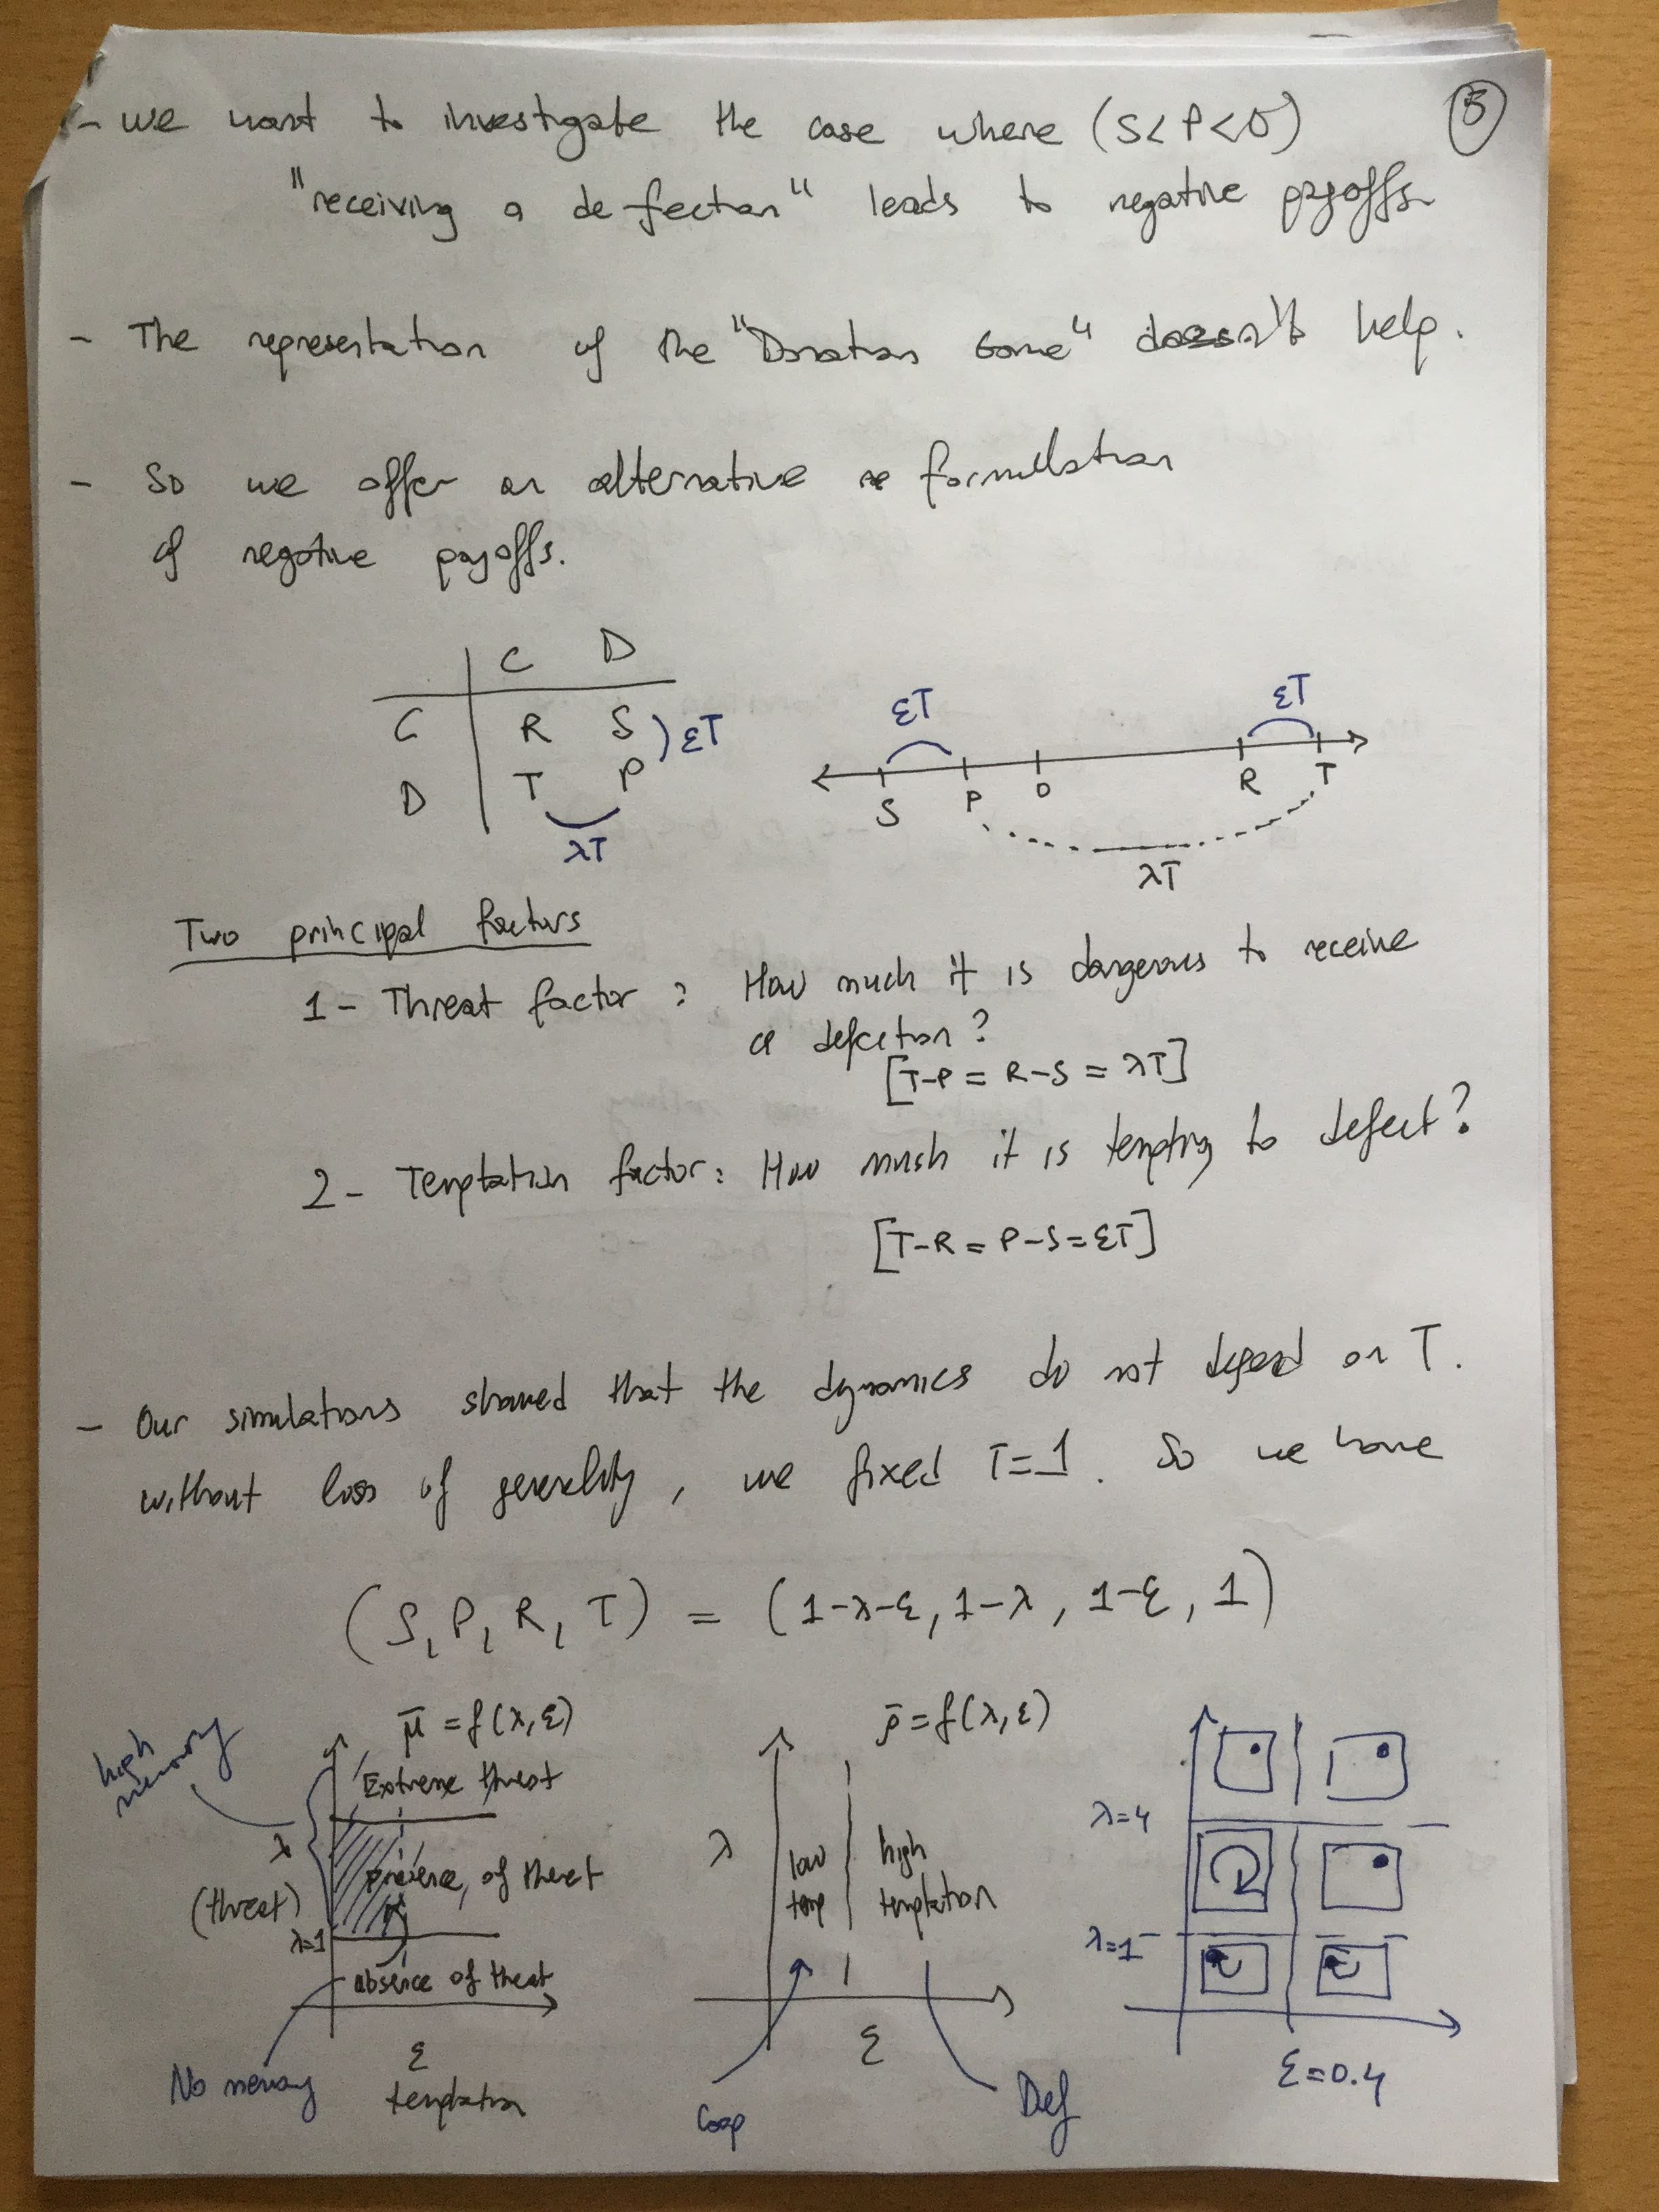 - we want to investigate the case where (S<P<0) 5
"receiving a defection" leads to negative payoffs
- The representation of the "Donation Game" doesn't help.
- So we offer an alternative formulation
of negative payoffs.
C D
C R S )εT
D T P
λT
εT εT
S P 0 R T
λT
Two principal factors
1- Threat factor: How much it is dangerous to receive
a defection?
[T-P = R-S = λT]
2- Temptation factor: How much it is tempting to defect?
[T-R = P-S = εT]
- Our simulations showed that the dynamics do not depend on T.
without loss of generality, we fixed T=1. So we have
(S, P, R, T) = (1-λ-ε, 1-λ, 1-ε, 1)
μ̄ = f(λ,ε)
high memory
Extreme threat
λ
(threat)
presence of threat
λ=1
absence of threat
No memory
ε
temptation
ρ̄ = f(λ,ε)
λ
low temp
high temptation
ε
Coop
Def
λ=4
λ=1
ε=0.4